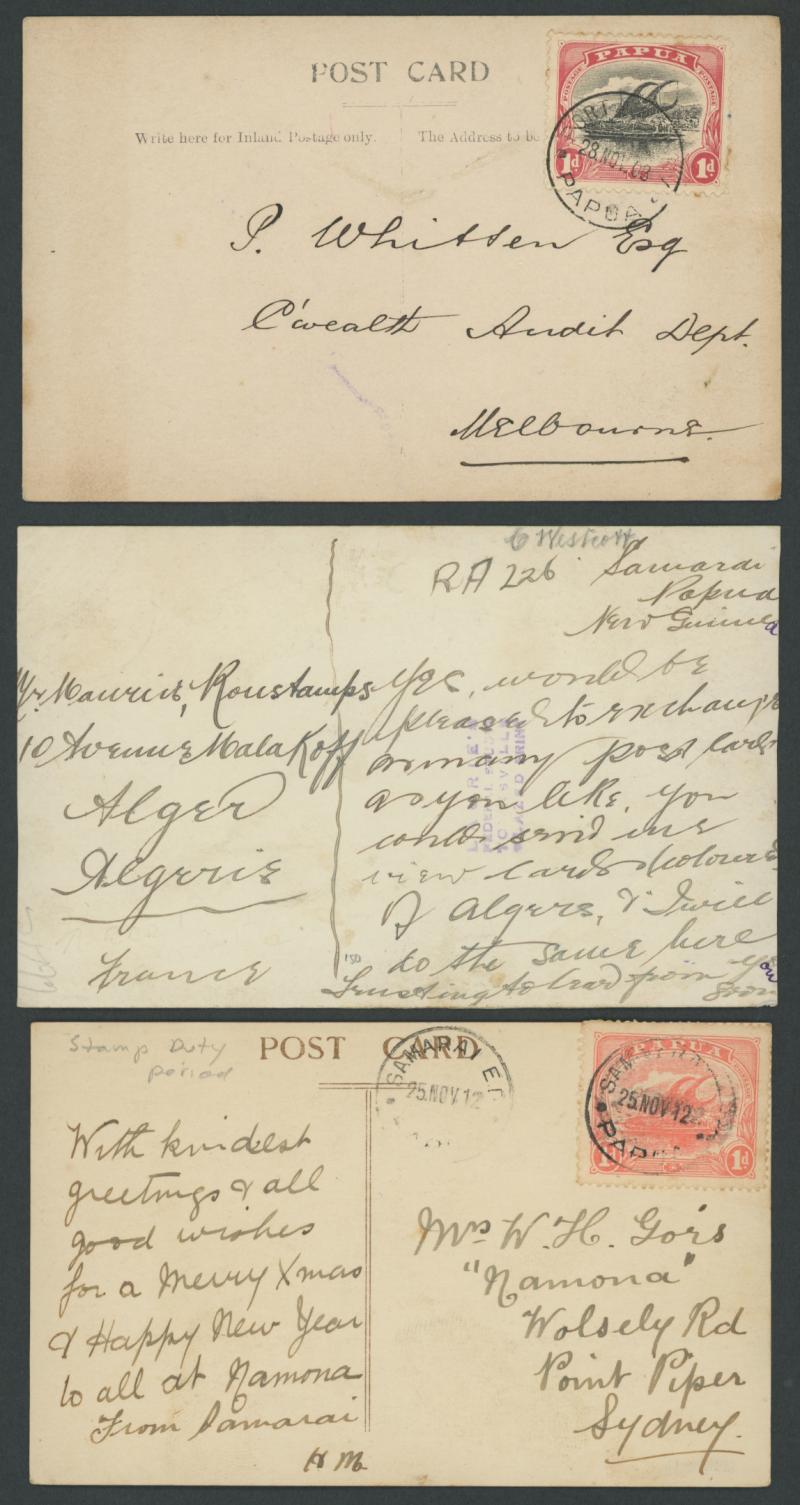 POST CARD
Write here for Inland Postage only.
The Address to be
PAPUA
POSTAGE
POSTAGE
1d
1d
PORT
28.NOV.08
PAPUA
P. Whitten Esq
C'wealth Audit Dept.
Melbourne.
C Westcott
RA 226
Samarai
Papua
New Guinea
Mr Maurice, Roustamps
10 Avenue Malakoff
Alger
Algerie
France
Yes, would be
pleased to exchange
as many post cards
as you like, you
could send me
view cards coloured
of Algers, & I will
do the same here
Trusting to hear from you
soon
Stamp Duty
period
POST CARD
SAMARAI
25.NOV.12
PAPUA
1d
1d
SAMARAI
25.NOV.12
PAPUA
With kindest
greetings & all
good wishes
for a Merry Xmas
& Happy New Year
to all at Namona
From Samarai
H M.
Mrs W. H. Gors
"Namona"
Wolsely Rd
Point Piper
Sydney.